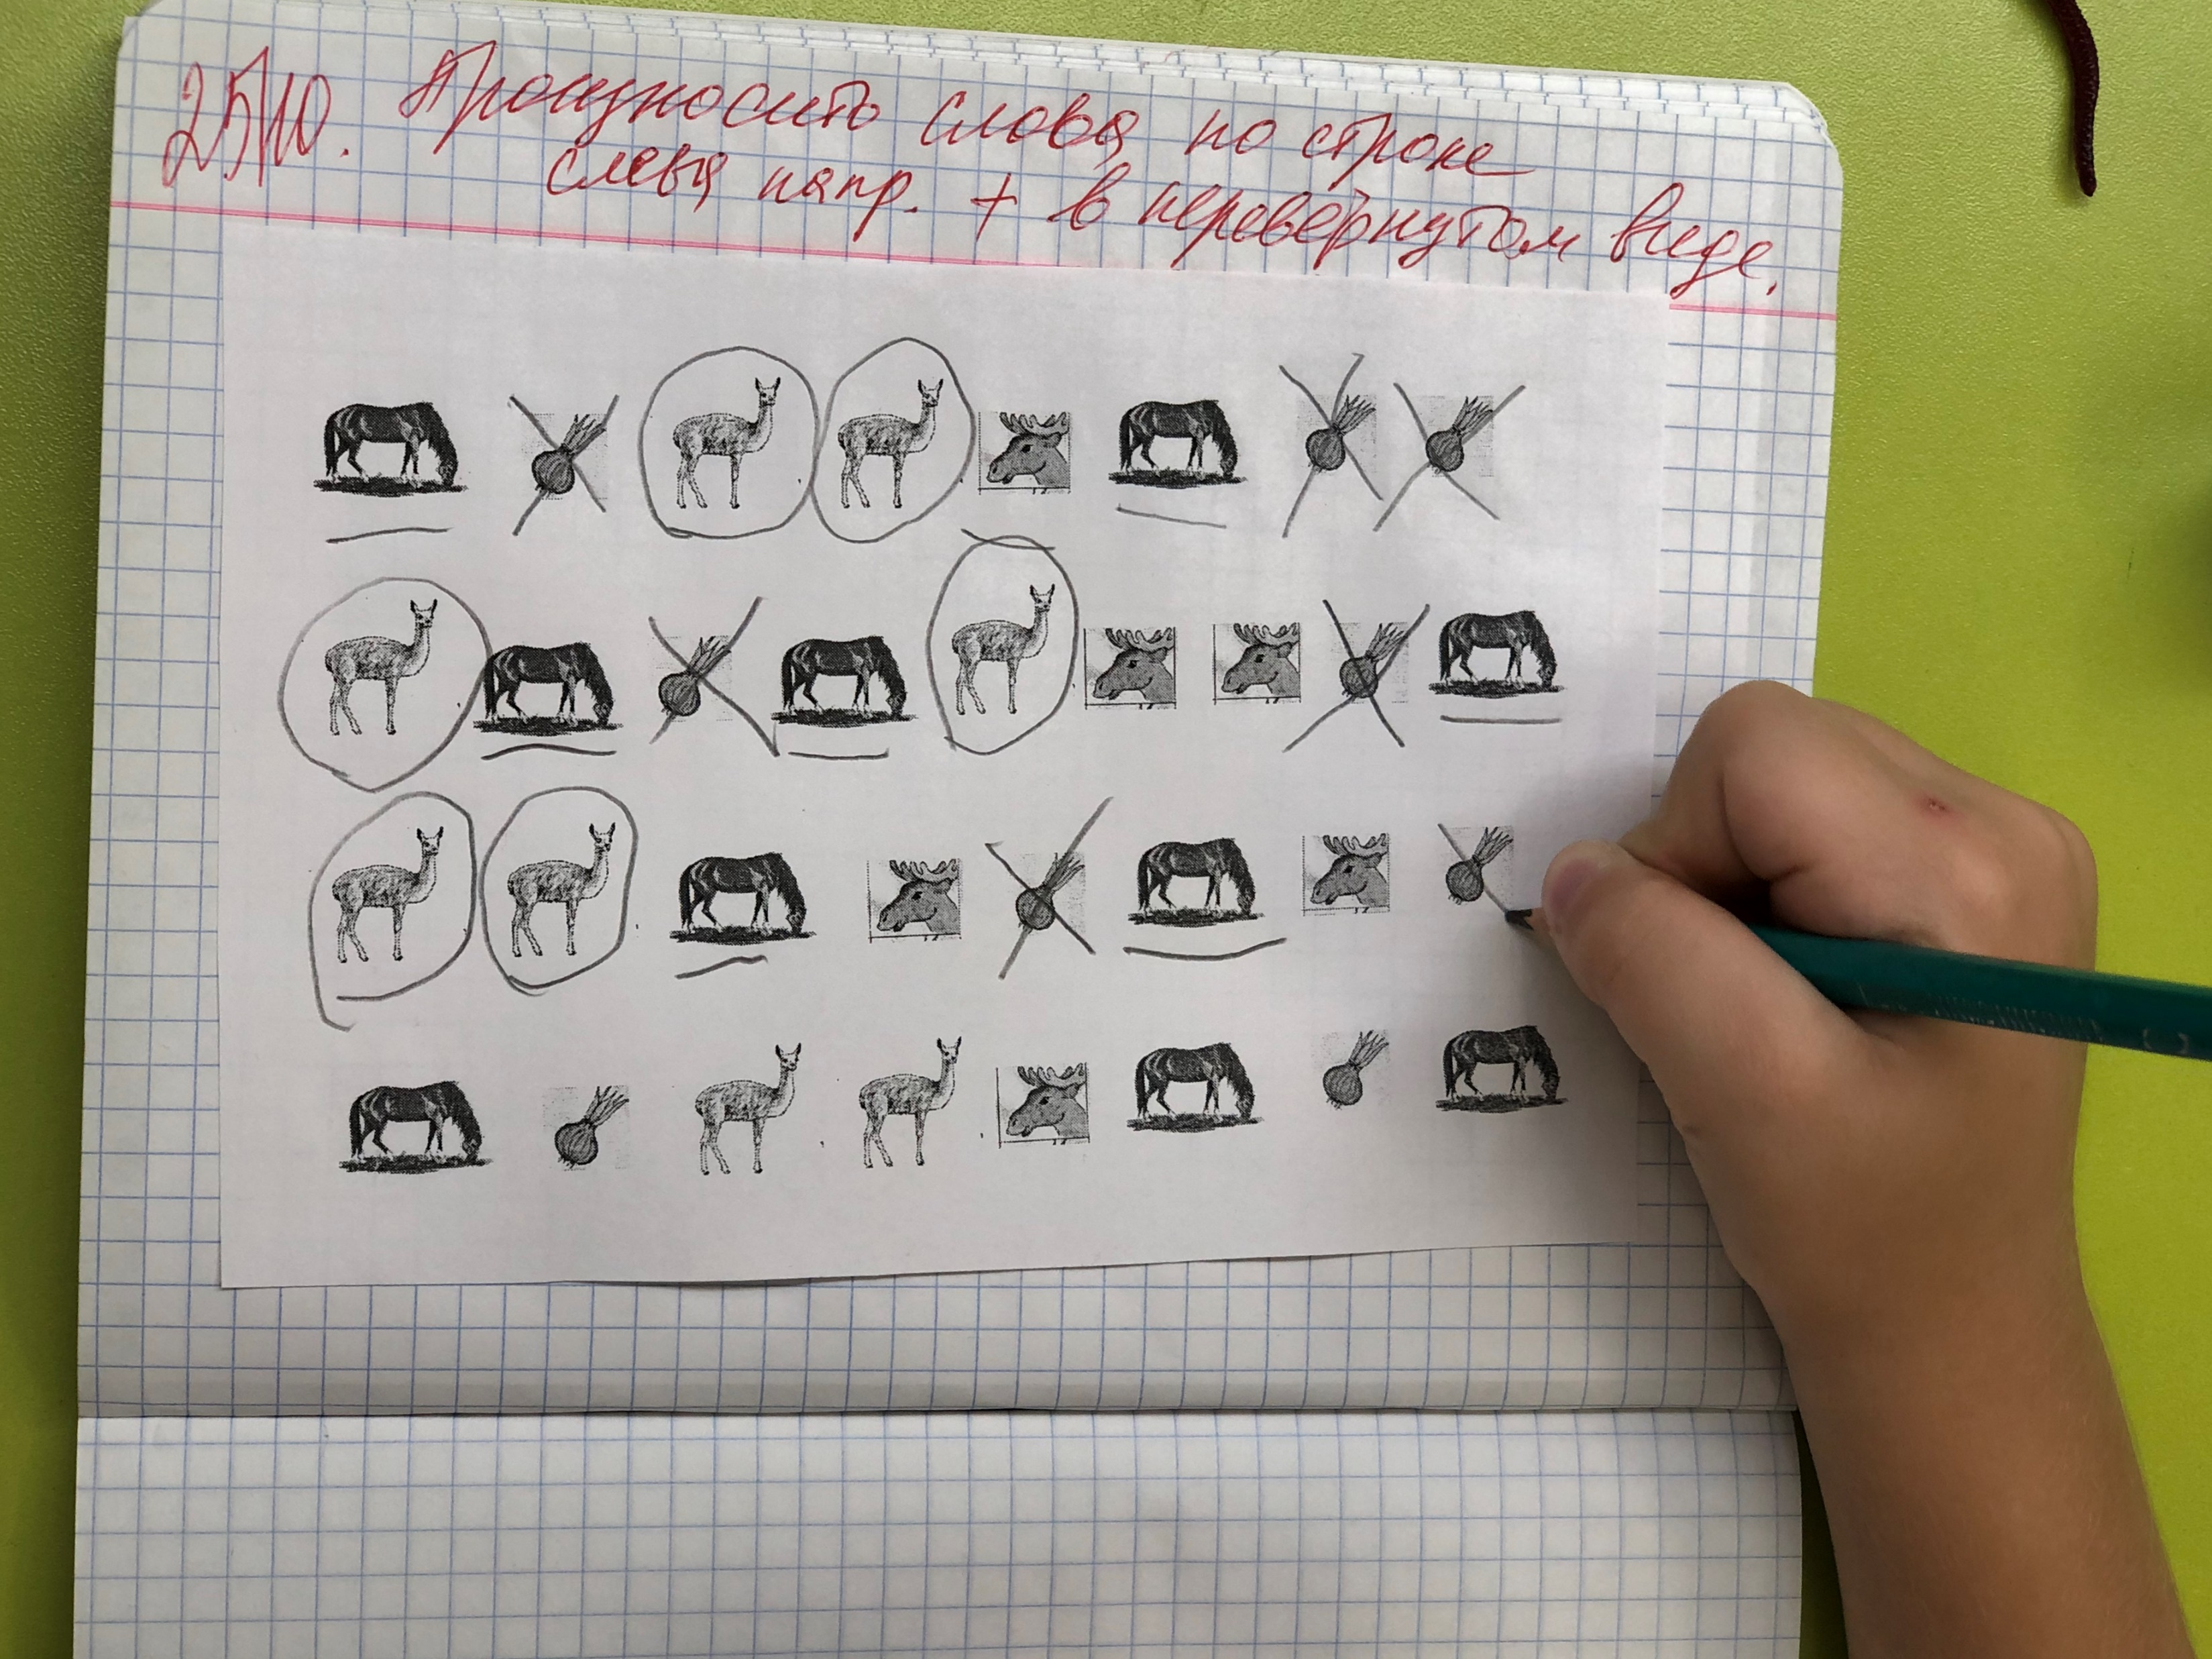 25/10. Произносить слова по строке
слева напр. + в перевёрнутом виде.